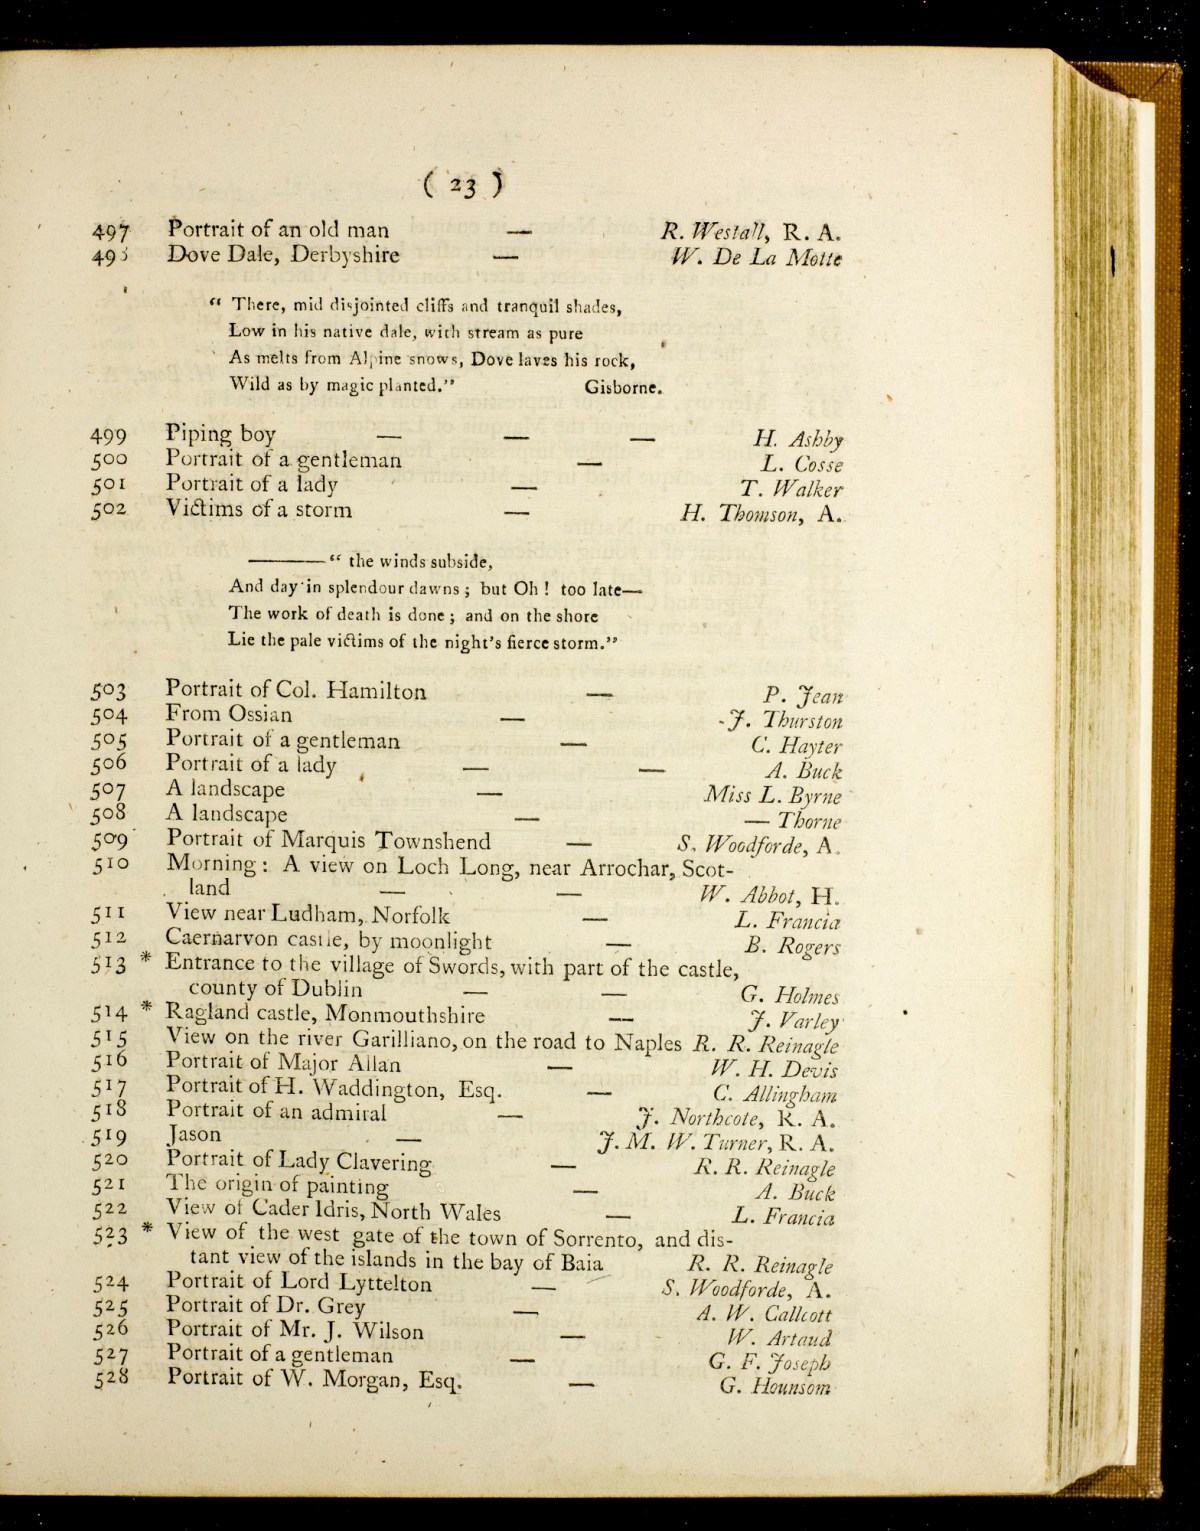 ( 23 )
497 Portrait of an old man — R. Westall, R. A.
498 Dove Dale, Derbyshire — W. De La Motte
“ There, mid disjointed cliffs and tranquil shades,
Low in his native dale, with stream as pure
As melts from Alpine snows, Dove laves his rock,
Wild as by magic planted.” Gisborne.
499 Piping boy — — — H. Ashby
500 Portrait of a gentleman — L. Cosse
501 Portrait of a lady — T. Walker
502 Victims of a storm — H. Thomson, A.
———“ the winds subside,
And day in splendour dawns ; but Oh ! too late—
The work of death is done ; and on the shore
Lie the pale victims of the night’s fierce storm.”
503 Portrait of Col. Hamilton — P. Jean
504 From Ossian — J. Thurston
505 Portrait of a gentleman — C. Hayter
506 Portrait of a lady — — A. Buck
507 A landscape — Miss L. Byrne
508 A landscape — — Thorne
509 Portrait of Marquis Townshend — S. Woodforde, A.
510 Morning : A view on Loch Long, near Arrochar, Scot-
land — — W. Abbot, H.
511 View near Ludham, Norfolk — L. Francia
512 Caernarvon castle, by moonlight — B. Rogers
513 * Entrance to the village of Swords, with part of the castle,
county of Dublin — — G. Holmes
514 * Ragland castle, Monmouthshire — J. Varley
515 View on the river Garilliano, on the road to Naples R. R. Reinagle
516 Portrait of Major Allan — W. H. Devis
517 Portrait of H. Waddington, Esq. — C. Allingham
518 Portrait of an admiral — J. Northcote, R. A.
519 Jason — J. M. W. Turner, R. A.
520 Portrait of Lady Clavering — R. R. Reinagle
521 The origin of painting — A. Buck
522 View of Cader Idris, North Wales — L. Francia
523 * View of the west gate of the town of Sorrento, and dis-
tant view of the islands in the bay of Baia R. R. Reinagle
524 Portrait of Lord Lyttelton — S. Woodforde, A.
525 Portrait of Dr. Grey — A. W. Callcott
526 Portrait of Mr. J. Wilson — W. Artaud
527 Portrait of a gentleman — G. F. Joseph
528 Portrait of W. Morgan, Esq. — G. Hounsom